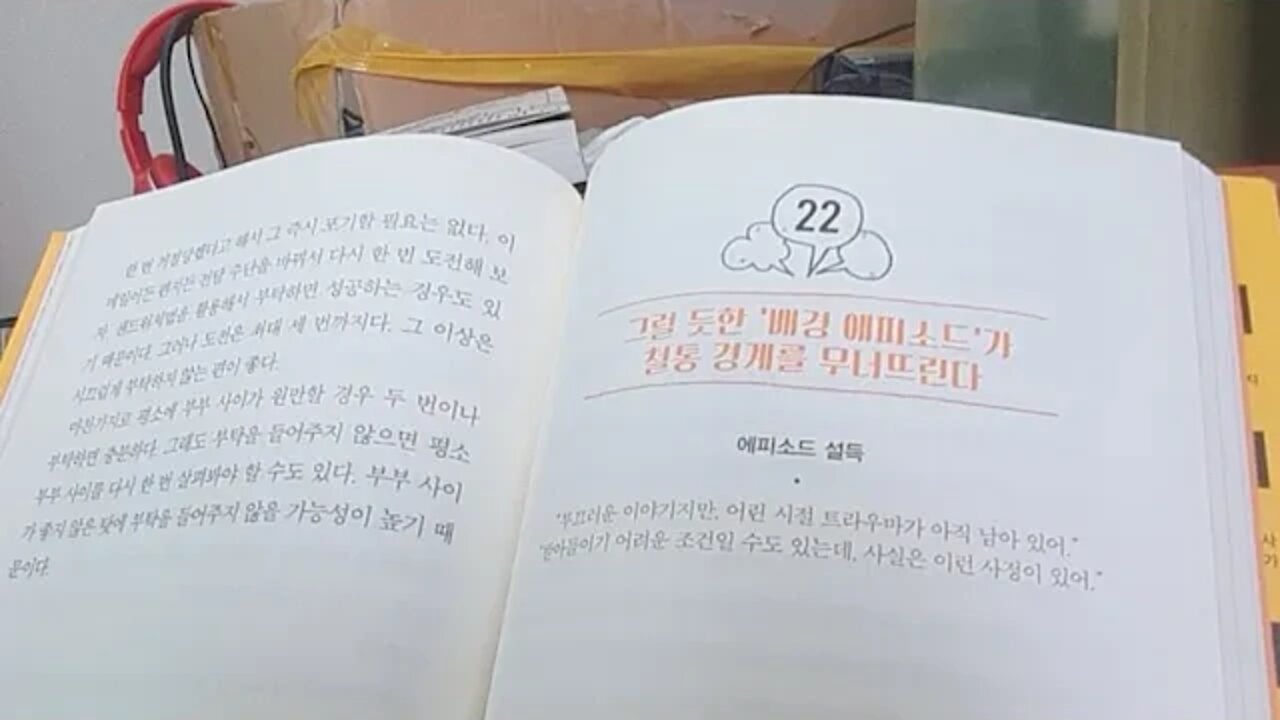 한 번 거절당했다고 해서 그 즉시 포기할 필요는 없다. 이
메일이든 편지든 전달 수단을 바꿔서 다시 한 번 도전해 보
자. 샌드위치법을 활용해서 부탁하면 성공하는 경우도 있
기 때문이다. 그러나 도전은 최대 세 번까지다. 그 이상은
시끄럽게 부탁하지 않는 편이 좋다.
마찬가지로 평소에 부부 사이가 원만할 경우 두 번이나
부탁하면 충분하다. 그래도 부탁을 들어주지 않으면 평소
부부 사이를 다시 한 번 살펴봐야 할 수도 있다. 부부 사이
가 좋지 않은 탓에 부탁을 들어주지 않을 가능성이 높기 때
문이다.
22
그럴 듯한 '배경 에피소드'가
철통 경계를 무너뜨린다
에피소드 설득
"부끄러운 이야기지만, 어린 시절 트라우마가 아직 남아 있어."
"받아들이기 어려운 조건일 수도 있는데, 사실은 이런 사정이 있어."